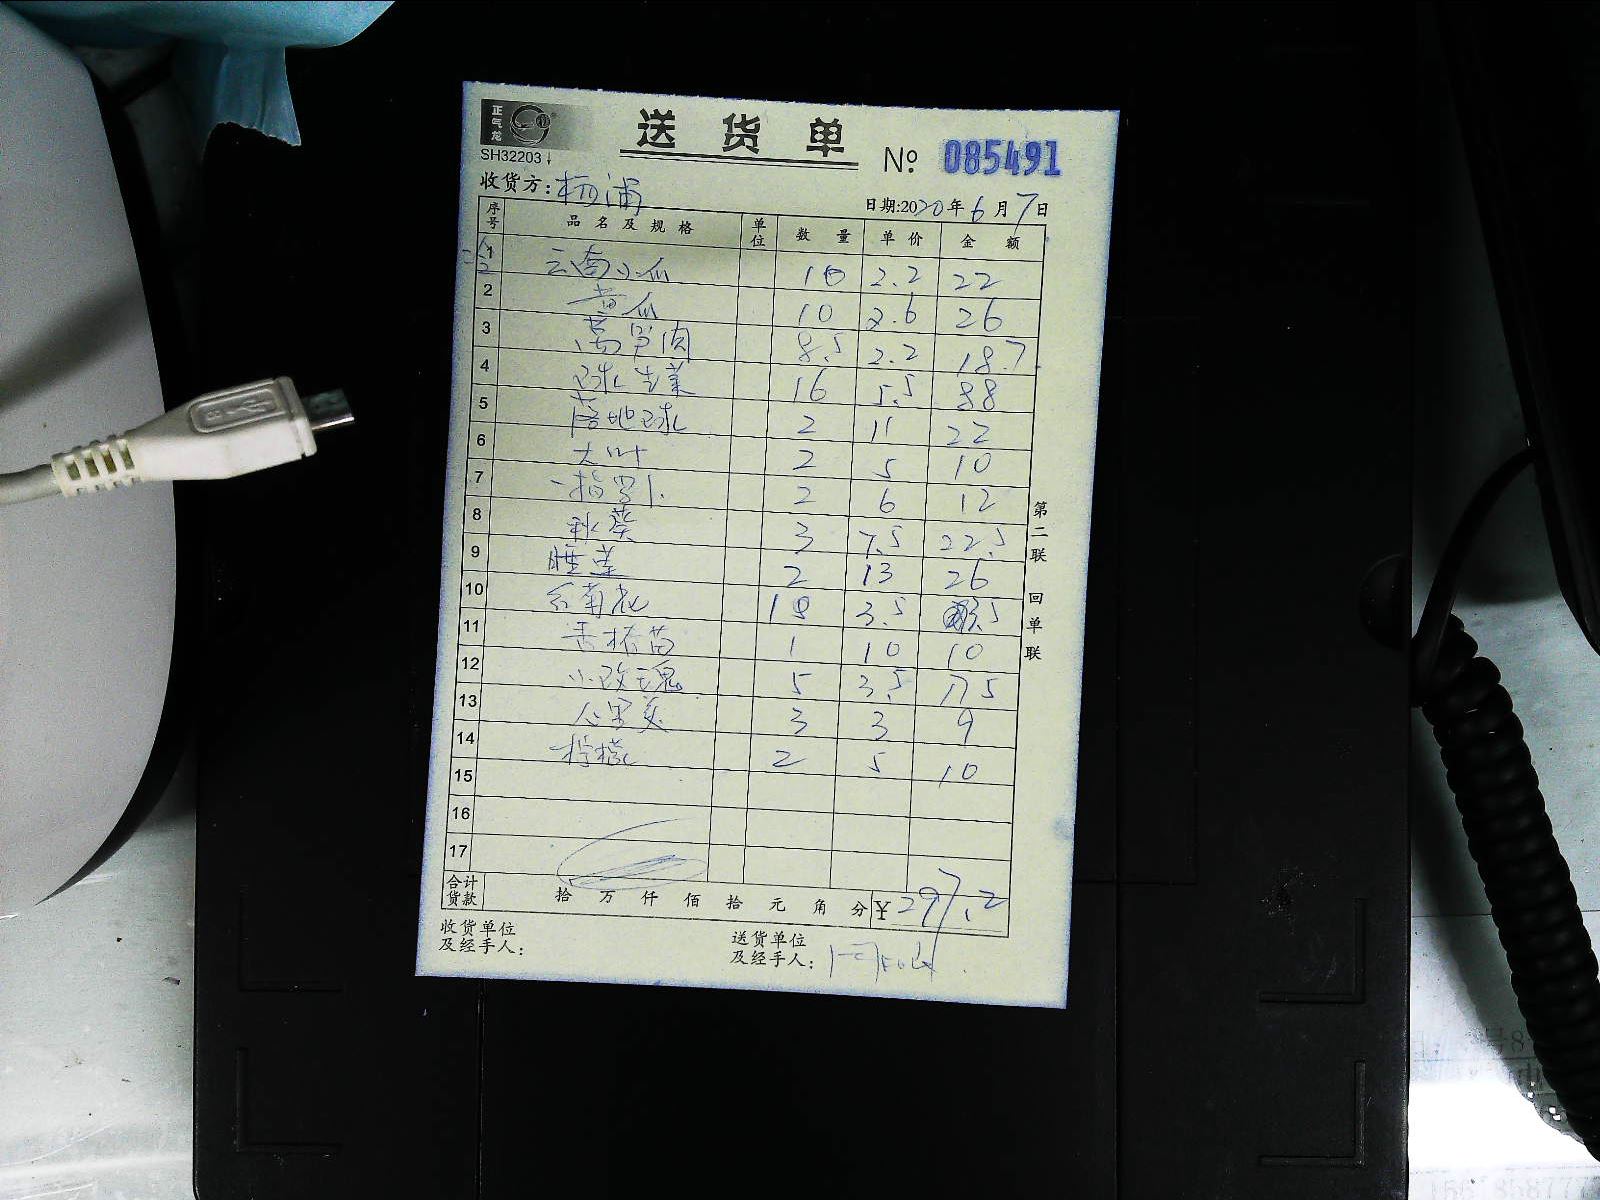 正气龙
送货单
SH32203↓
№ 085491
收货方: 杨浦
日期:2020年6月7日
序号 品名及规格 单位 数量 单价 金额
1 云南小瓜 10 2.2 22
2 青瓜 10 2.6 26
3 莴笋肉 8.5 2.2 18.7
4 球生菜 16 5.5 88
5 落地球 2 11 22
6 大叶 2 5 10
7 一指罗卜 2 6 12
8 秋葵 3 7.5 22.5
9 2 13 26
10 3.5
11 香椿苗 1 10 10
12 小玫瑰 5 3.5 17.5
13 3 3 9
14 柠檬 2 5 10
15
16
17
合计货款 拾 万 仟 佰 拾 元 角 分 ¥297.2
收货单位及经手人:
送货单位及经手人:
第二联 回单联